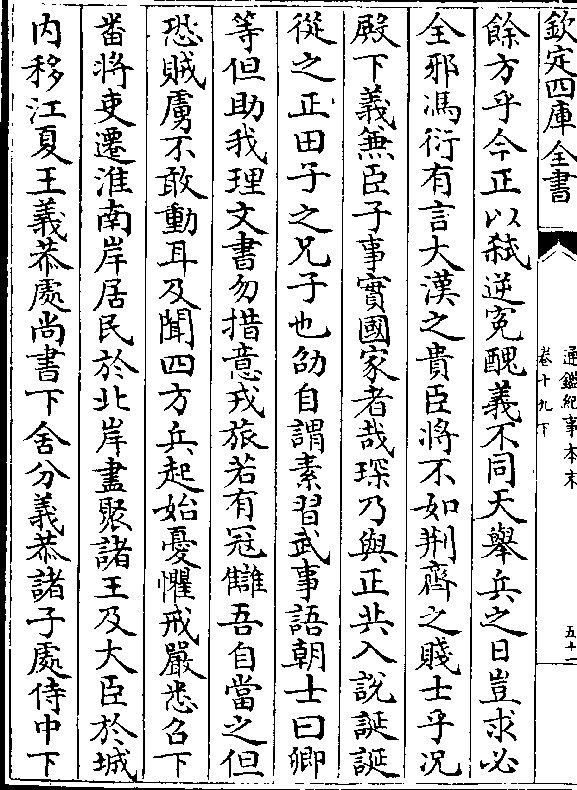 欽定四庫全書
通鑑紀事本末
卷十九下
五十二
餘方乎今正以弑逆寃醜義不同天舉兵之日豈求必
全邪馮衍有言大漢之貴臣將不如荆齊之賤士乎况
殿下義無臣子事實國家者哉琛乃與正共入說誕誕
從之正田子之兄子也劭自謂素習武事語朝士曰卿
等但助我理文書勿措意戎旅若有冦讎吾自當之但
恐賊虜不敢動耳及聞四方兵起始憂懼戒嚴悉召下
畨將吏遷淮南岸居民於北岸盡聚諸王及大臣於城
内移江夏王義恭處尚書下舍分義恭諸子處侍中下